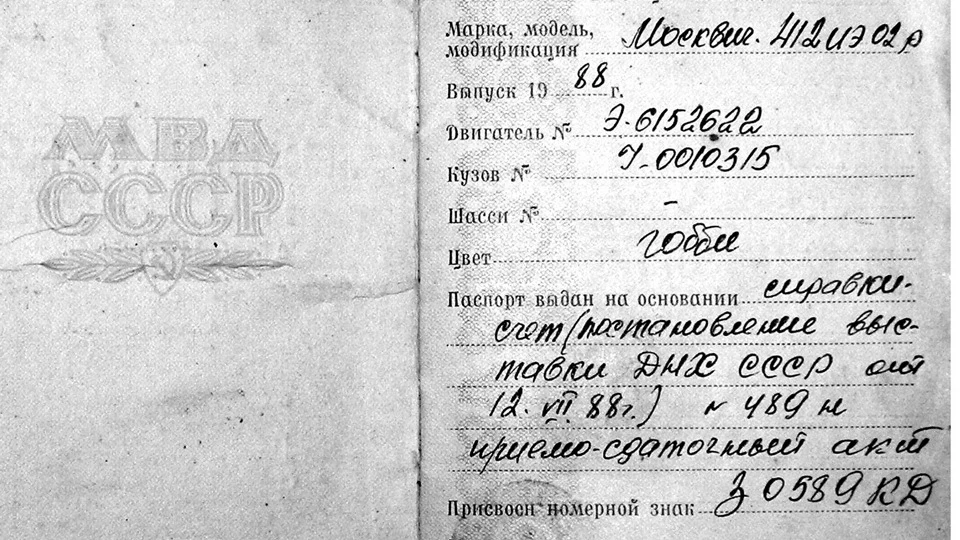 МВД
СССР
Марка, модель,
модификация Москвич. 412ИЭ02
Выпуск 19 88 г.
Двигатель № Э-6152622
Кузов № 0010315
Шасси № -
Цвет гобби
Паспорт выдан на основании справки-
счет (постановление выс-
тавки ДНХ СССР от
12. VII 88г.) № 489 и
приемо-сдаточный акт
Присвоен номерной знак З 0589 КД